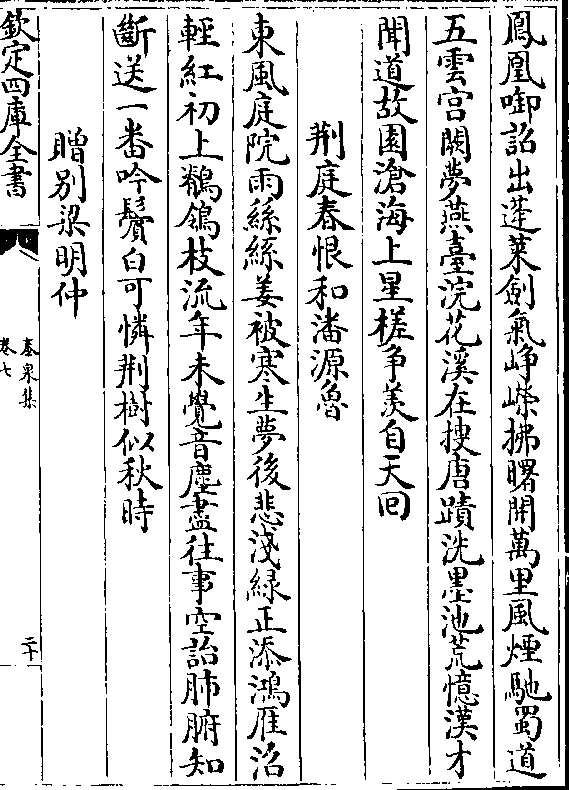 鳳凰啣詔出蓬萊劍氣崢嶸拂曙開萬里風煙馳蜀道
五雲宫闕夢燕臺浣花溪在捜唐蹟洗墨池荒憶漢才
聞道故園滄海上星槎争羡自天回
荆庭春恨和潘源魯
東風庭院雨絲絲姜被寒生夢後悲淺緑正添鴻雁沼
輕紅初上鶺鴒枝流年未覺音塵盡往事空詒肺腑知
斷送一番吟鬢白可憐荆樹似秋時
贈别梁明仲
欽定四庫全書
泰泉集
卷七
二十